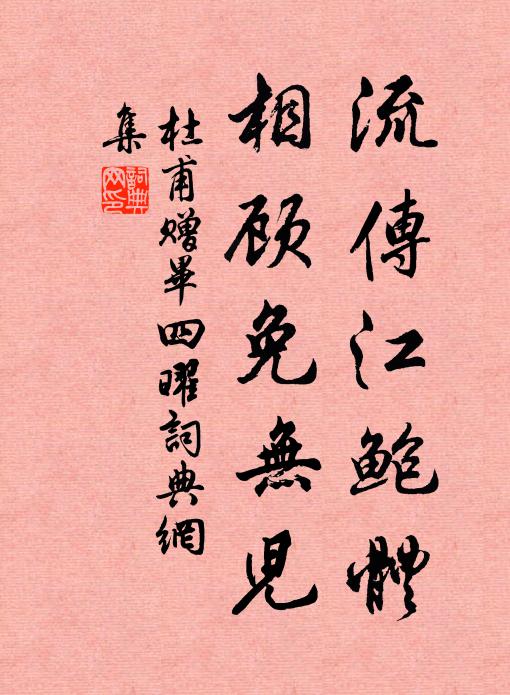 流傳江鲍體
相顾免無兒
杜甫赠畢四曜詞典網
集
詞典网印